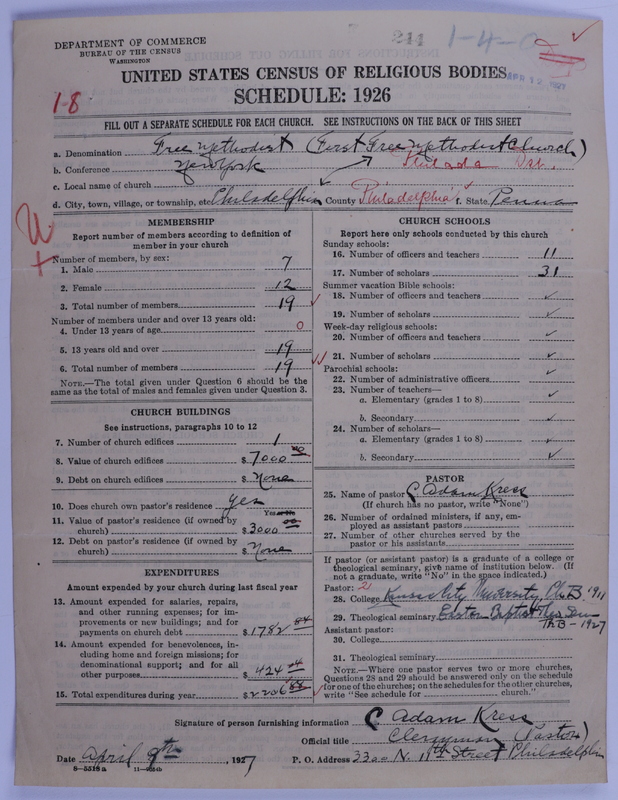 DEPARTMENT OF COMMERCE
BUREAU OF THE CENSUS
WASHINGTON
244
1-4-0
APR 12 1927
UNITED STATES CENSUS OF RELIGIOUS BODIES
1-8
SCHEDULE: 1926
FILL OUT A SEPARATE SCHEDULE FOR EACH CHURCH. SEE INSTRUCTIONS ON THE BACK OF THIS SHEET
a. Denomination Free Methodist (First Free Methodist Church)
b. Conference New York Philada Dst.
c. Local name of church
d. City, town, village, or township, etc. Philadelphia e. County Philadelphia f. State Penna
MEMBERSHIP
Report number of members according to definition of
member in your church
Number of members, by sex:
1. Male 7
2. Female 12
3. Total number of members 19
Number of members under and over 13 years old:
4. Under 13 years of age 0
5. 13 years old and over 19
6. Total number of members 19
NOTE.—The total given under Question 6 should be the
same as the total of males and females given under Question 3.
CHURCH BUILDINGS
See instructions, paragraphs 10 to 12
7. Number of church edifices 1
8. Value of church edifices $ 7000 00
9. Debt on church edifices $ None
10. Does church own pastor's residence? Yes
Yes or No
11. Value of pastor's residence (if owned by
church) $ 3000 00
12. Debt on pastor's residence (if owned by
church) $ None
EXPENDITURES
Amount expended by your church during last fiscal year
13. Amount expended for salaries, repairs,
and other running expenses; for im-
provements or new buildings; and for
payments on church debt $ 1782 84
14. Amount expended for benevolences, in-
cluding home and foreign missions; for
denominational support; and for all
other purposes $ 424 04
15. Total expenditures during year $ 2206 88
CHURCH SCHOOLS
Report here only schools conducted by this church
Sunday schools:
16. Number of officers and teachers 11
17. Number of scholars 31
Summer vacation Bible schools:
18. Number of officers and teachers ✓
19. Number of scholars ✓
Week-day religious schools:
20. Number of officers and teachers ✓
21. Number of scholars ✓
Parochial schools:
22. Number of administrative officers ✓
23. Number of teachers—
a. Elementary (grades 1 to 8) ✓
b. Secondary ✓
24. Number of scholars—
a. Elementary (grades 1 to 8) ✓
b. Secondary ✓
PASTOR
25. Name of pastor C Adam Kress
(If church has no pastor, write "None")
26. Number of ordained ministers, if any, em-
ployed as assistant pastors
27. Number of other churches served by the
pastor or his assistants
If pastor (or assistant pastor) is a graduate of a college or
theological seminary, give name of institution below. (If
not a graduate, write "No" in the space indicated.)
Pastor: 2
28. College Kansas City University, Ph.B. 1911
29. Theological seminary Eastern Baptist Theo Sem
Th B - 1927
Assistant pastor:
30. College
31. Theological seminary
NOTE.—Where one pastor serves two or more churches,
Questions 28 and 29 should be answered only on the schedule
for one of the churches; on the schedules for the other churches,
write "See schedule for church."
Signature of person furnishing information C Adam Kress
Official title Clergyman (Pastor)
Date April 9th, 1927 P. O. Address 3300 N. 11th Street Philadelphia
8—5518a